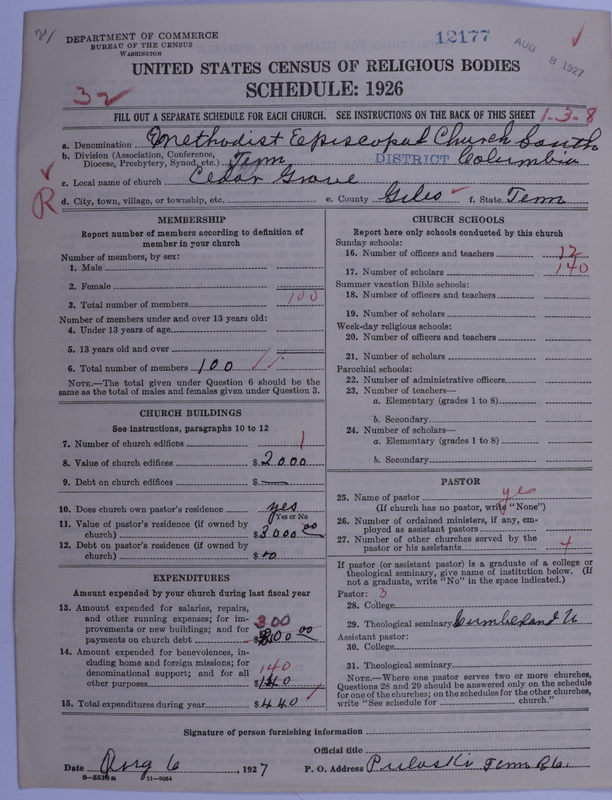 DEPARTMENT OF COMMERCE
BUREAU OF THE CENSUS
WASHINGTON
12177
AUG 8 1927
UNITED STATES CENSUS OF RELIGIOUS BODIES
SCHEDULE: 1926
32
FILL OUT A SEPARATE SCHEDULE FOR EACH CHURCH. SEE INSTRUCTIONS ON THE BACK OF THIS SHEET 1-3-8
a. Denomination Methodist Episcopal Church South
b. Division (Association, Conference, Diocese, Presbytery, Synod, etc.) Tenn. DISTRICT Columbia
c. Local name of church Cedar Grove
R
d. City, town, village, or township, etc. e. County Giles f. State Tenn
MEMBERSHIP
Report number of members according to definition of
member in your church
Number of members, by sex:
1. Male
2. Female
3. Total number of members 100
Number of members under and over 13 years old:
4. Under 13 years of age
5. 13 years old and over
6. Total number of members 100
NOTE.—The total given under Question 6 should be the
same as the total of males and females given under Question 3.
CHURCH BUILDINGS
See instructions, paragraphs 10 to 12
7. Number of church edifices 1
8. Value of church edifices $ 2000
9. Debt on church edifices $ —
10. Does church own pastor's residence yes
Yes or No
11. Value of pastor's residence (if owned by
church) $ 3000 00
12. Debt on pastor's residence (if owned by
church) $
EXPENDITURES
Amount expended by your church during last fiscal year
13. Amount expended for salaries, repairs,
and other running expenses; for im-
provements or new buildings; and for 300
payments on church debt $ 300 00
14. Amount expended for benevolences, in-
cluding home and foreign missions; for
denominational support; and for all 140
other purposes $ 140
15. Total expenditures during year $ 440
CHURCH SCHOOLS
Report here only schools conducted by this church
Sunday schools:
16. Number of officers and teachers 12
17. Number of scholars 140
Summer vacation Bible schools:
18. Number of officers and teachers
19. Number of scholars
Week-day religious schools:
20. Number of officers and teachers
21. Number of scholars
Parochial schools:
22. Number of administrative officers
23. Number of teachers—
a. Elementary (grades 1 to 8)
b. Secondary
24. Number of scholars—
a. Elementary (grades 1 to 8)
b. Secondary
PASTOR
25. Name of pastor yes
(If church has no pastor, write "None")
26. Number of ordained ministers, if any, em-
ployed as assistant pastors
27. Number of other churches served by the
pastor or his assistants 4
If pastor (or assistant pastor) is a graduate of a college or
theological seminary, give name of institution below. (If
not a graduate, write "No" in the space indicated.)
Pastor: 3
28. College
29. Theological seminary Cumberland U
Assistant pastor:
30. College
31. Theological seminary
NOTE.—Where one pastor serves two or more churches,
Questions 28 and 29 should be answered only on the schedule
for one of the churches; on the schedules for the other churches,
write "See schedule for church."
Signature of person furnishing information
Official title
Date Aug 6, 1927 P. O. Address Pulaski Tenn R6.
11—9054